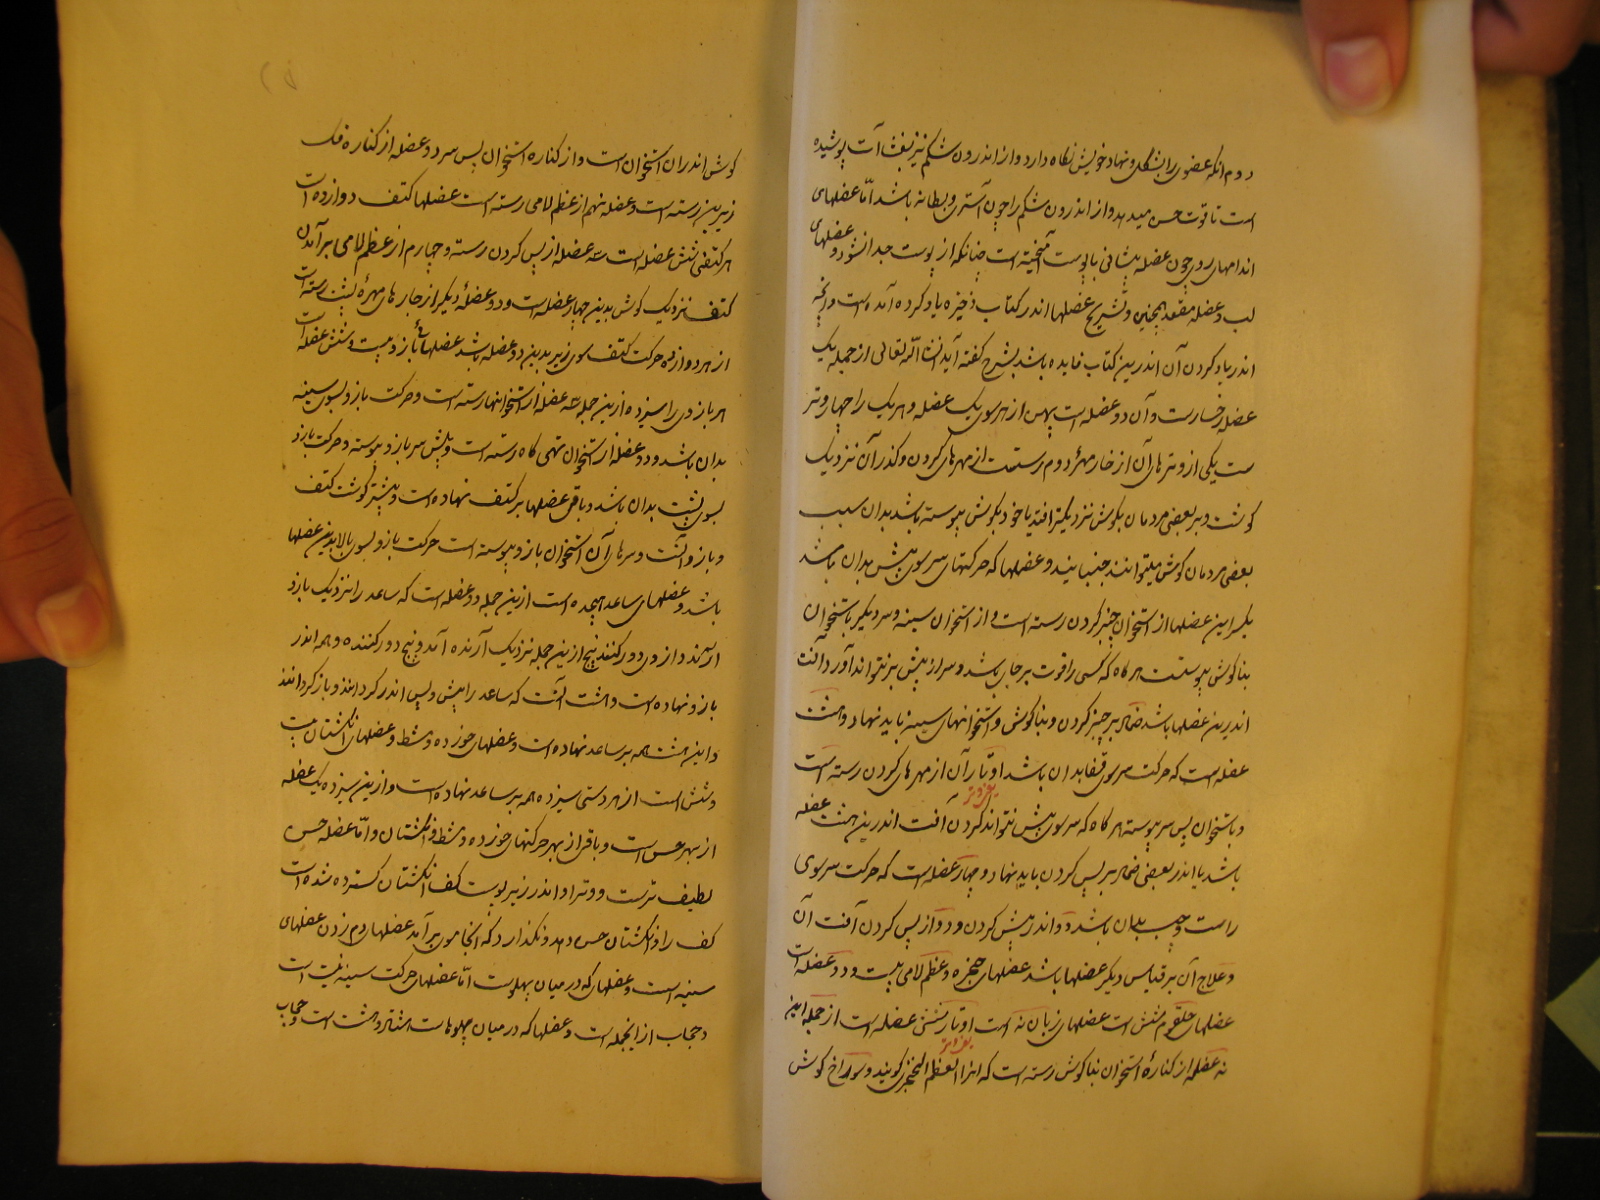 دوم انکه عضوی را بشکل و نهاد خویش نگاه دارد و از اندرون شکم نیز بغشا آت پوشیده
است تا قوت حس میدهد و از اندرون شکم را چون آستری و بطانه باشد اما عضلهای
اندامهای روی چون عضله پیشانی با پوست آمیخته است چنانکه از پوست جدا نشود و عضلهای
لب و عضله مقعد همچنین و تشریح عضلها اندر کتاب ذخیره یاد کرده آمده است و انچه
اندر یاد کردن آن اندرین کتاب فایده باشد بشرح گفته آید انشا الله تعالی از جمله یک
عضله رخسارست و آن دو عضله است پهن از هر سوی یک عضله و هر یک را چهار وتر
ست یکی از وترهای آن از خار مهرهٔ دوم رستست از مهرهای کردن و کذر آن نزدیک
کوشت و بر بعضی مردمان بکوش نزدیکتر افتد یا خود بکوش پیوسته باشد بدان سبب
بعضی مردمان کوش میتوانند جنبانید و عضلها که حرکتهای سر سوی پیش بدان باشد
یکسر این عضلها از استخوان چنبر کردن رسته است و از استخوان سینه و سر دیکر باستخوان
بناکوش پیوستست هر کاه که کسی را قوت بر جای باشد و سر از پیش بر نتواند آورد آفت
اندرین عضلها باشد ضماد بر چنبر کردن و بناکوش و استخوانهای سینه باید نهاد و هشت
عضله است که حرکت سر سوی قفا بدان باشد اوتار آن از مهرهای کردن رسته است
و باستخوان پس سر پیوسته هر کاه که سر سوی پیش نتواند کردن آفت اندرین هشت عضله
باشد یا اندر بعضی ضماد بر پس کردن باید نهاد و چهار عضله است که حرکت سر سوی
راست و چپ بدان باشد دو اندر پیش کردن و دو از پس کردن آفت آن
و علاج آن بر قیاس دیکر عضلها باشد عضلهای حنجره و عظم لامی بیست و دو عضله است
عضلهای حلقوم شش است عضلهای زبان نه است اوتار شش عضله است از جمله این
نه عضله از کنارهٔ استخوان بناکوش رسته است که انرا العظم الحجری کویند و سوراخ کوش
کوش اندران استخوان است و از کناره استخوان پس سر دو عضله از کناره فک
زیرین رسته است و عضله نهم از عظم لامی رسته است عضلها کتف دوازده است
هر کتفی شش عضله است سه عضله از پس کردن رسته و چهارم از عظم لامی بر آمدن
کتف نزدیک کوش بدین چهار عضله است و دو عضلهٔ دیکر از خارهای مهرهٔ پشت رسته است
از هر دوازده حرکت کتف سوی زیر بدین دو عضله باشد عضلهای بازو بیست و شش عضله است
هر بازوی را سیزده ازین جمله سه عضله از استخوانها رسته است و حرکت بازو بسوی سینه
بدان باشد و دو عضله از استخوان تهی کاه رسته است و بپیش سر بازو پیوسته و حرکت بازو
بسوی پشت بدان باشد و باقی عضلها بر کتف نهاده است و بیشتر کوشت کتف
و بازو آنست و سرهای آن استخوان بازو پیوسته است حرکت بازو بسوی بالا بدین عضلها
باشد و عضلهای ساعد هیجده است ازین جمله دو عضله است که ساعد را نزدیک بازو
آرند و از وی دور کنند پنج ازین جمله نزدیک آرنده آمد و پنج دور کننده و همه اندر
بازو نهاده است و هشت آنست که ساعد را پیش و پس اندر کردانند و باز کردانند
و این هشت همه بر ساعد نهاده است و عضلهای خورده و مشط و عضلهای انکشتان بیست
و شش است از هر دستی سیزده همه بر ساعد نهاده است و ازین سیزده یک عضله
از بهر حس است و باقی از بهر حرکتهای خورده و مشط و انکشتان و اما عضله حس
لطیف ترست و وتر او اندر زیر پوست کف انکشتان کسترده شده است
کف را و انکشتان حس دهد و نکذارد که انجا موی بر آمد عضلهای دم زدن عضلهای
سینه است و عضلهای که در میان پهلوست اما عضلهای حرکت سینه نیست است
و حجاب از انجمله است و عضلها که در میان پهلوهاست هشتاد و هشت است و حجاب